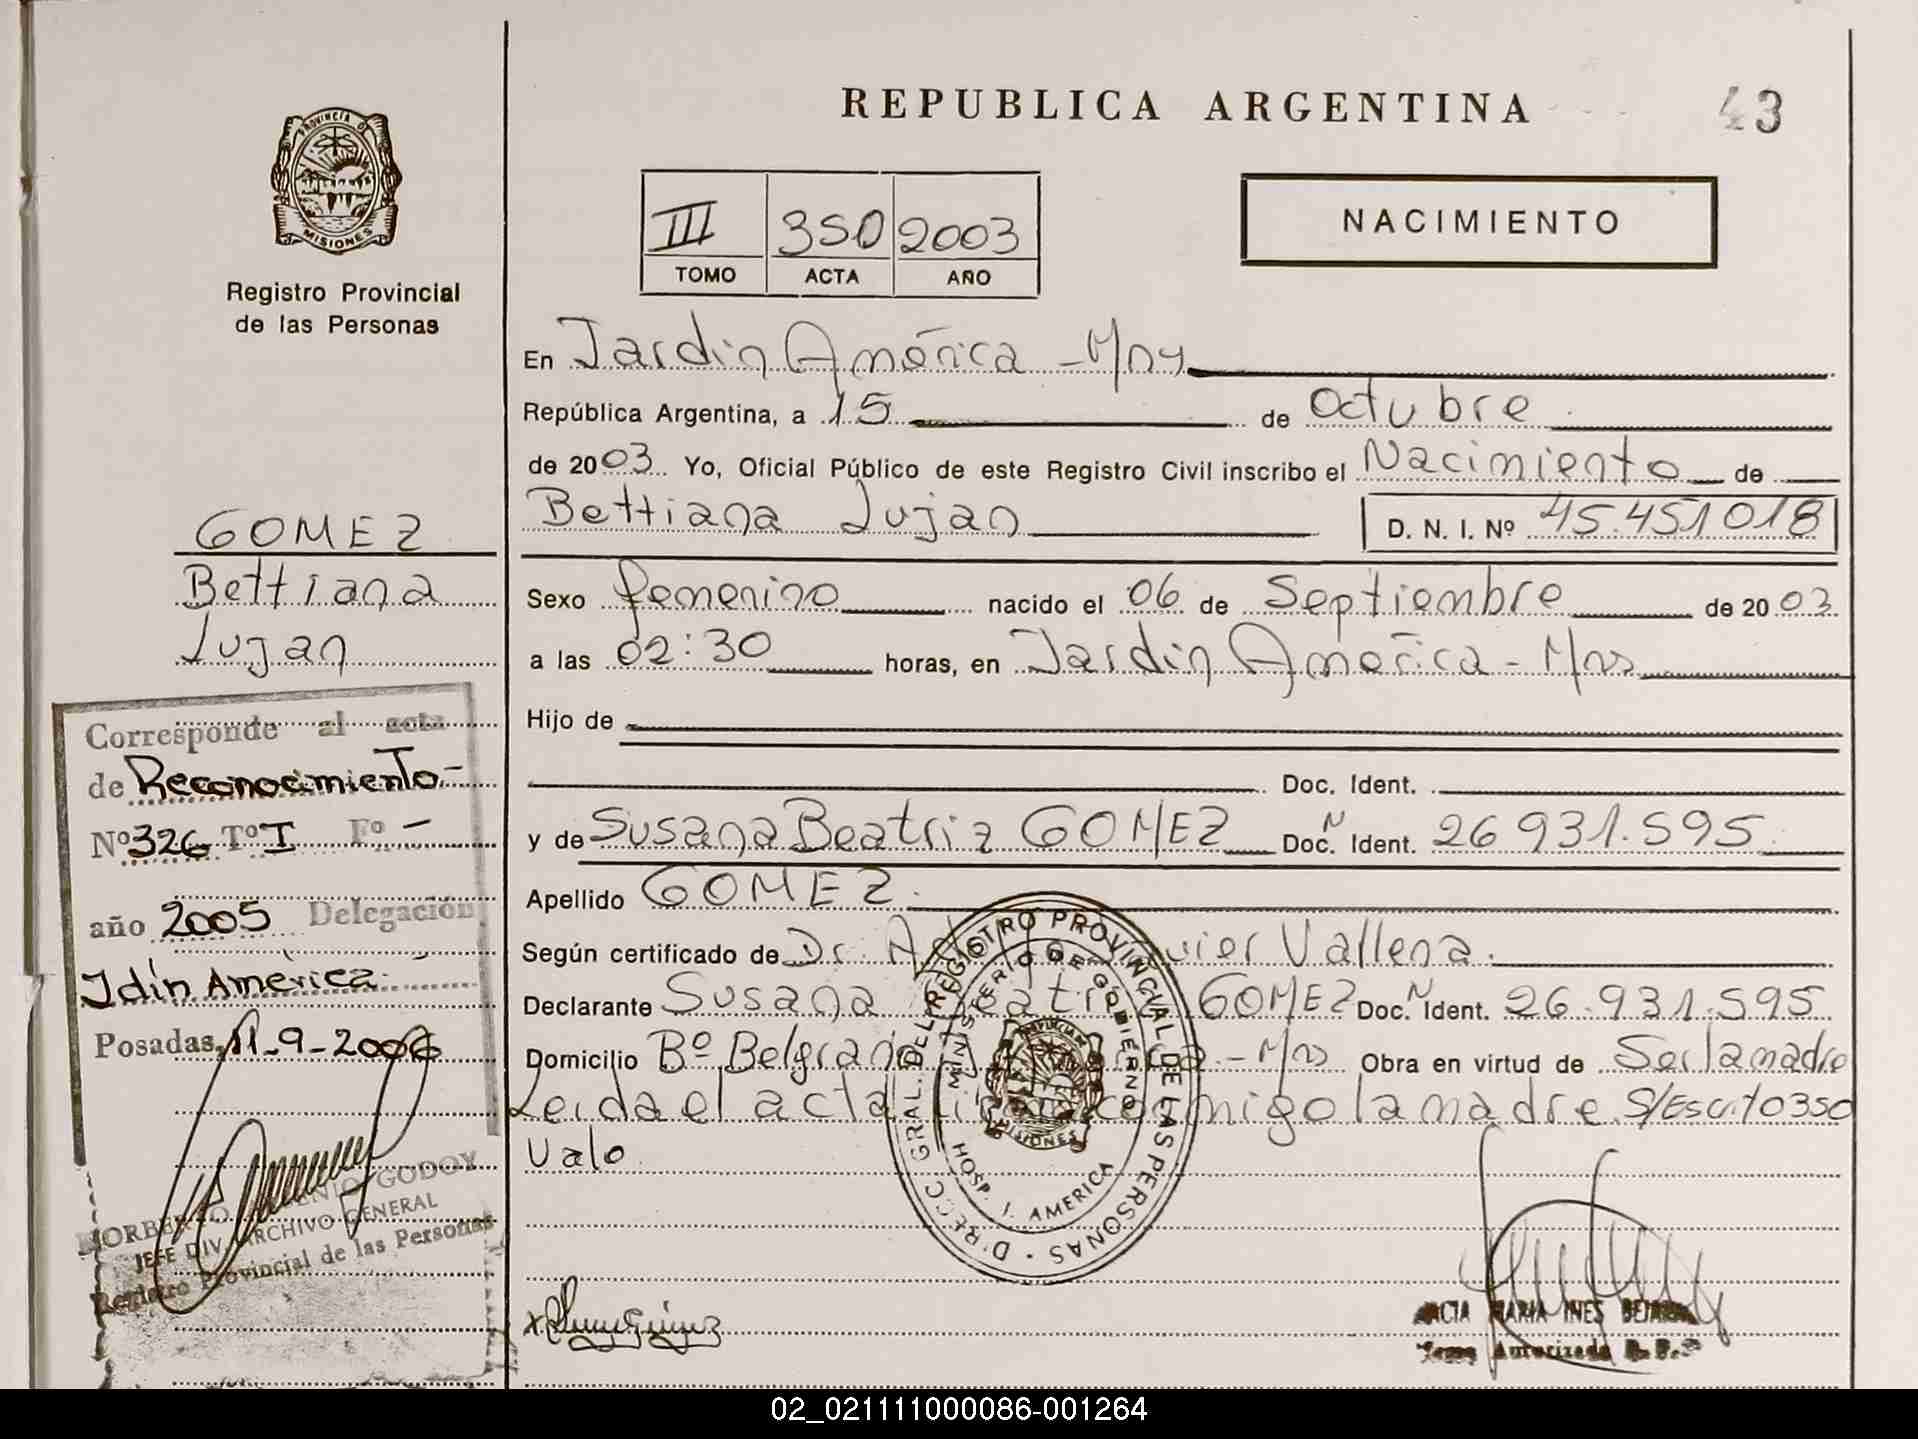 REPUBLICA ARGENTINA
43
PROVINCIA DE
MISIONES
Registro Provincial
de las Personas
III 350 2003
TOMO ACTA AÑO
NACIMIENTO
En Jardin América - Mns
República Argentina, a 15 de Octubre
de 2003 Yo, Oficial Público de este Registro Civil inscribo el Nacimiento de
Bettiana Lujan D. N. I. Nº 45.451018
Sexo femenino nacido el 06 de Septiembre de 2003
a las 02:30 horas, en Jardin América - Mns
Hijo de
Doc. Ident.
y de Susana Beatriz GOMEZ Doc. N Ident. 26 931.595
Apellido GOMEZ.
Según certificado de Dr. Javier Vallena.
Declarante Susana Beatriz GOMEZ Doc. N Ident. 26.931.595
Domicilio Bº Belgrano - Mns Obra en virtud de Ser la madre
Leida el acta firma conmigo la madre. S/Escrito 350
Valo
GOMEZ
Bettiana
Lujan
Corresponde al acta
de Reconocimiento-
Nº 326 Tº I Fº -
año 2005 Delegación
Jdín América
Posadas, 11-9-2006
NORBERTO GODOY
JEFE DIV. ARCHIVO GENERAL
Registro Provincial de las Personas
DIRECC GRAL. DEL REGISTRO PROVINCIAL DE LAS PERSONAS
MINISTERIO DE GOBIERNO
HOSP. J. AMERICA
MISIONES
MARIA INES
Autorizada
02_021111000086-001264